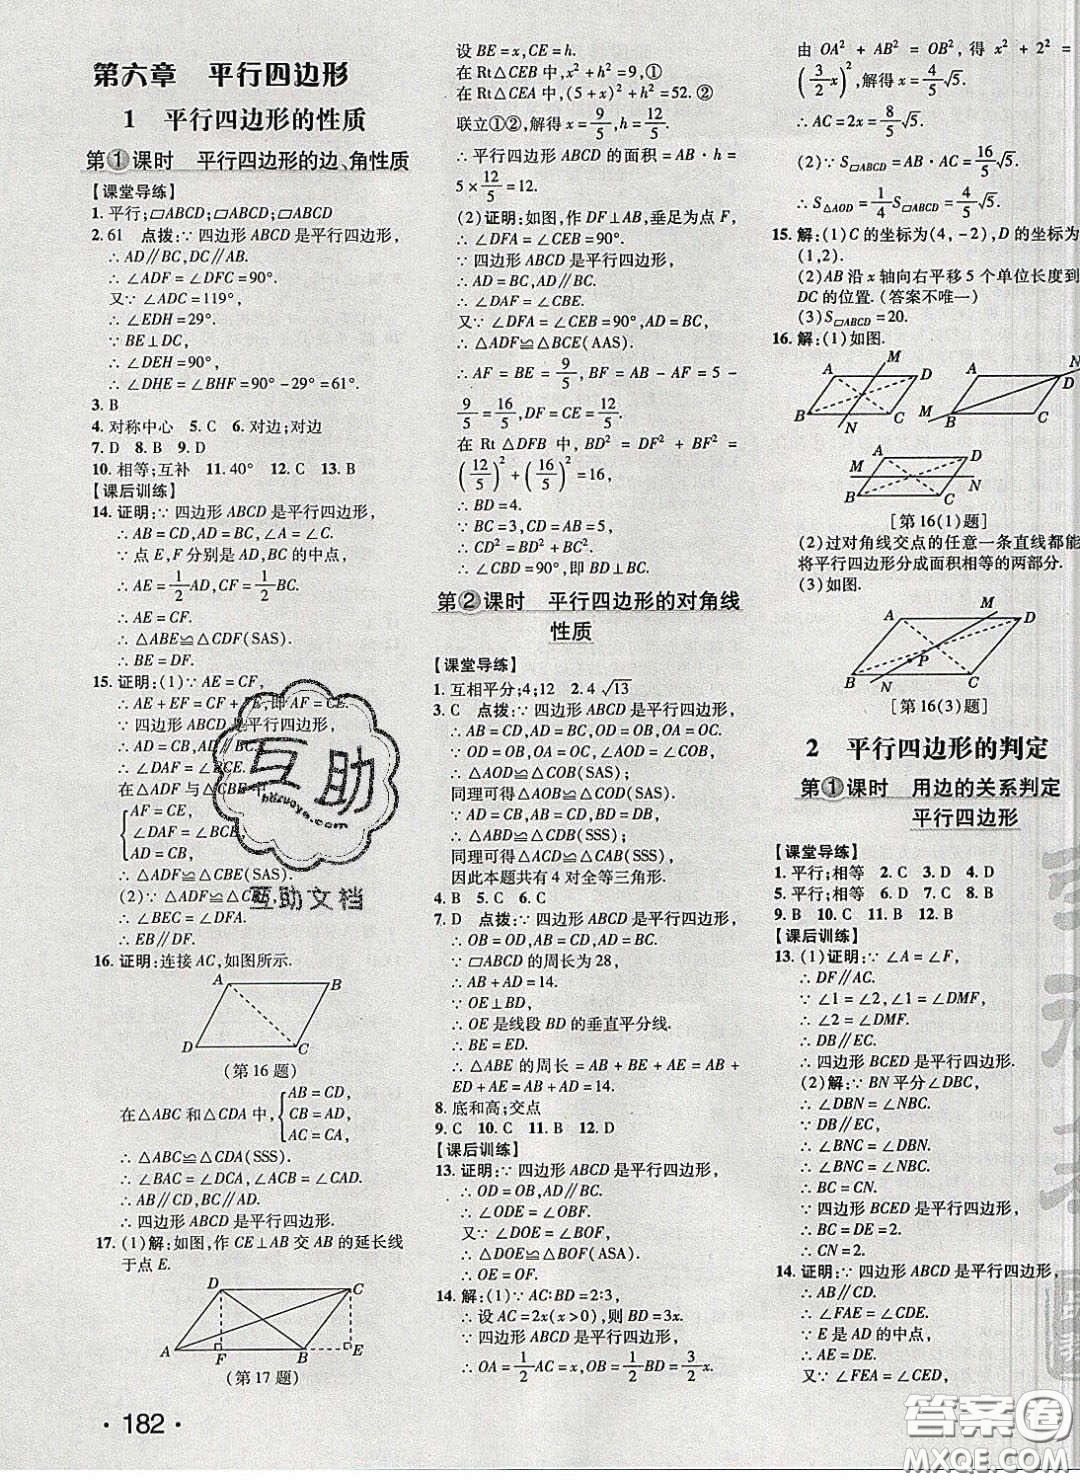 第六章 平行四边形
1 平行四边形的性质
第①课时 平行四边形的边、角性质
【课堂导练】
1. 平行;▱ABCD;▱ABCD;▱ABCD
2. 61 点拨:∵四边形ABCD是平行四边形,
∴AD∥BC,DC∥AB.
∴∠ADF=∠DFC=90°.
又∵∠ADC=119°,
∴∠EDH=29°.
∵BE⊥DC,
∴∠DEH=90°.
∴∠DHE=∠BHF=90°-29°=61°.
3. B
4. 对称中心 5. C 6. 对边;对边
7. D 8. B 9. D
10. 相等;互补 11. 40° 12. C 13. B
【课后训练】
14. 证明:∵四边形ABCD是平行四边形,
∴AB=CD,AD=BC,∠A=∠C.
∵点E,F分别是AD,BC的中点,
∴AE=1/2AD,CF=1/2BC.
∴AE=CF.
∴△ABE≌△CDF(SAS).
∴BE=DF.
15. 证明:(1)∵AE=CF,
∴AE+EF=CF+EF,即AF=CE.
∵四边形ABCD是平行四边形,
∴AD=CB,AD∥BC.
∴∠DAF=∠BCE.
在△ADF与△CBE中,
{AF=CE,
∠DAF=∠BCE,
AD=CB,
∴△ADF≌△CBE(SAS).
(2)∵△ADF≌△CBE,
∴∠BEC=∠DFA.
∴EB∥DF.
16. 证明:连接AC,如图所示.
A B
D C
(第16题)
在△ABC和△CDA中,{AB=CD,
CB=AD,
AC=CA,
∴△ABC≌△CDA(SSS).
∴∠BAC=∠DCA,∠ACB=∠CAD.
∴AB∥CD,AD∥BC.
∴四边形ABCD是平行四边形.
17. (1)解:如图,作CE⊥AB交AB的延长线
于点E.
D C
A F B E
(第17题)
· 182 ·
设BE=x,CE=h.
在Rt△CEB中,x²+h²=9,①
在Rt△CEA中,(5+x)²+h²=52.②
联立①②,解得x=9/5,h=12/5.
∴平行四边形ABCD的面积=AB·h=
5×12/5=12.
(2)证明:如图,作DF⊥AB,垂足为点F,
∴∠DFA=∠CEB=90°.
∵四边形ABCD是平行四边形,
∴AD=BC,AD∥BC.
∴∠DAF=∠CBE.
又∵∠DFA=∠CEB=90°,
∴△ADF≌△BCE(AAS).
∴AF=BE=9/5,BF=AB-AF=5-
9/5=16/5,DF=CE=12/5.
在Rt△DFB中,BD²=DF²+BF²=
(12/5)²+(16/5)²=16,
∴BD=4.
∵BC=3,DC=5,
∴CD²=BD²+BC².
∴∠CBD=90°,即BD⊥BC.
第②课时 平行四边形的对角线
性质
【课堂导练】
1. 互相平分;4;12 2. 4√13
3. C 点拨:∵四边形ABCD是平行四边形,
∴AB=CD,AD=BC,OD=OB,OA=OC.
∵∠AOD=∠COB,
∴△AOD≌△COB(SAS).
同理可得△AOB≌△COD(SAS).
∵BC=AD,CD=AB,BD=BD,
∴△ABD≌△CDB(SSS).
同理可得△ACD≌△CAB(SSS).
因此本题共有4对全等三角形.
4. B 5. C 6. C
7. D 点拨:∵四边形ABCD是平行四边形,
∴OB=OD,AB=CD,AD=BC.
∵▱ABCD的周长为28,
∴AB+AD=14.
∵OE⊥BD,
∴OE是线段BD的垂直平分线.
∴BE=ED.
∴△ABE的周长=AB+BE+AE=AB+
ED+AE=AB+AD=14.
8. 底和高;交点
9. C 10. C 11. B 12. D
【课后训练】
13. 证明:∵四边形ABCD是平行四边形,
∴OD=OB,AD∥BC.
∴∠ODE=∠OBF.
又∵∠DOE=∠BOF,
∴△DOE≌△BOF(ASA).
∴OE=OF.
14. 解:(1)∵AC∶BD=2∶3,
∴设AC=2x(x>0),则BD=3x.
∵四边形ABCD是平行四边形,
∴OA=1/2AC=x,OB=1/2BD=3/2x.
由OA²+AB²=OB²,得x²+2²=
(3/2x)²,解得x=4/5√5.
∴AC=2x=8/5√5.
(2)∵S▱ABCD=AB·AC=16/5√5,
∴S△AOD=1/4S▱ABCD=4/5√5.
15. 解:(1)C的坐标为(4,-2),D的坐标为
(1,2).
(2)AB沿x轴向右平移5个单位长度到
DC的位置.(答案不唯一)
(3)S▱ABCD=20.
16. 解:(1)如图.
A M D
B N C
A D N
M B C
A D
M N
B C
[第16(1)题]
(2)过对角线交点的任意一条直线都能
将平行四边形分成面积相等的两部分.
(3)如图.
A M D
P
B N C
[第16(3)题]
2 平行四边形的判定
第①课时 用边的关系判定
平行四边形
【课堂导练】
1. 平行;相等 2. C 3. D 4. D
5. 平行;相等 6. C 7. A 8. D
9. B 10. C 11. B 12. B
【课后训练】
13. (1)证明:∵∠A=∠F,
∴DF∥AC.
∵∠1=∠2,∠1=∠DMF,
∴∠2=∠DMF.
∴DB∥EC.
∴四边形BCED是平行四边形.
(2)解:∵BN平分∠DBC,
∴∠DBN=∠NBC.
∵DB∥EC,
∴∠BNC=∠DBN.
∴∠BNC=∠NBC.
∴BC=CN.
∵四边形BCED是平行四边形,
∴BC=DE=2.
∴CN=2.
14. 证明:∵四边形ABCD是平行四边形,
∴AB∥CD.
∴∠FAE=∠CDE.
∵E是AD的中点,
∴AE=DE.
又∵∠FEA=∠CED,
互助
互助文档
答案圈
MXQE.COM